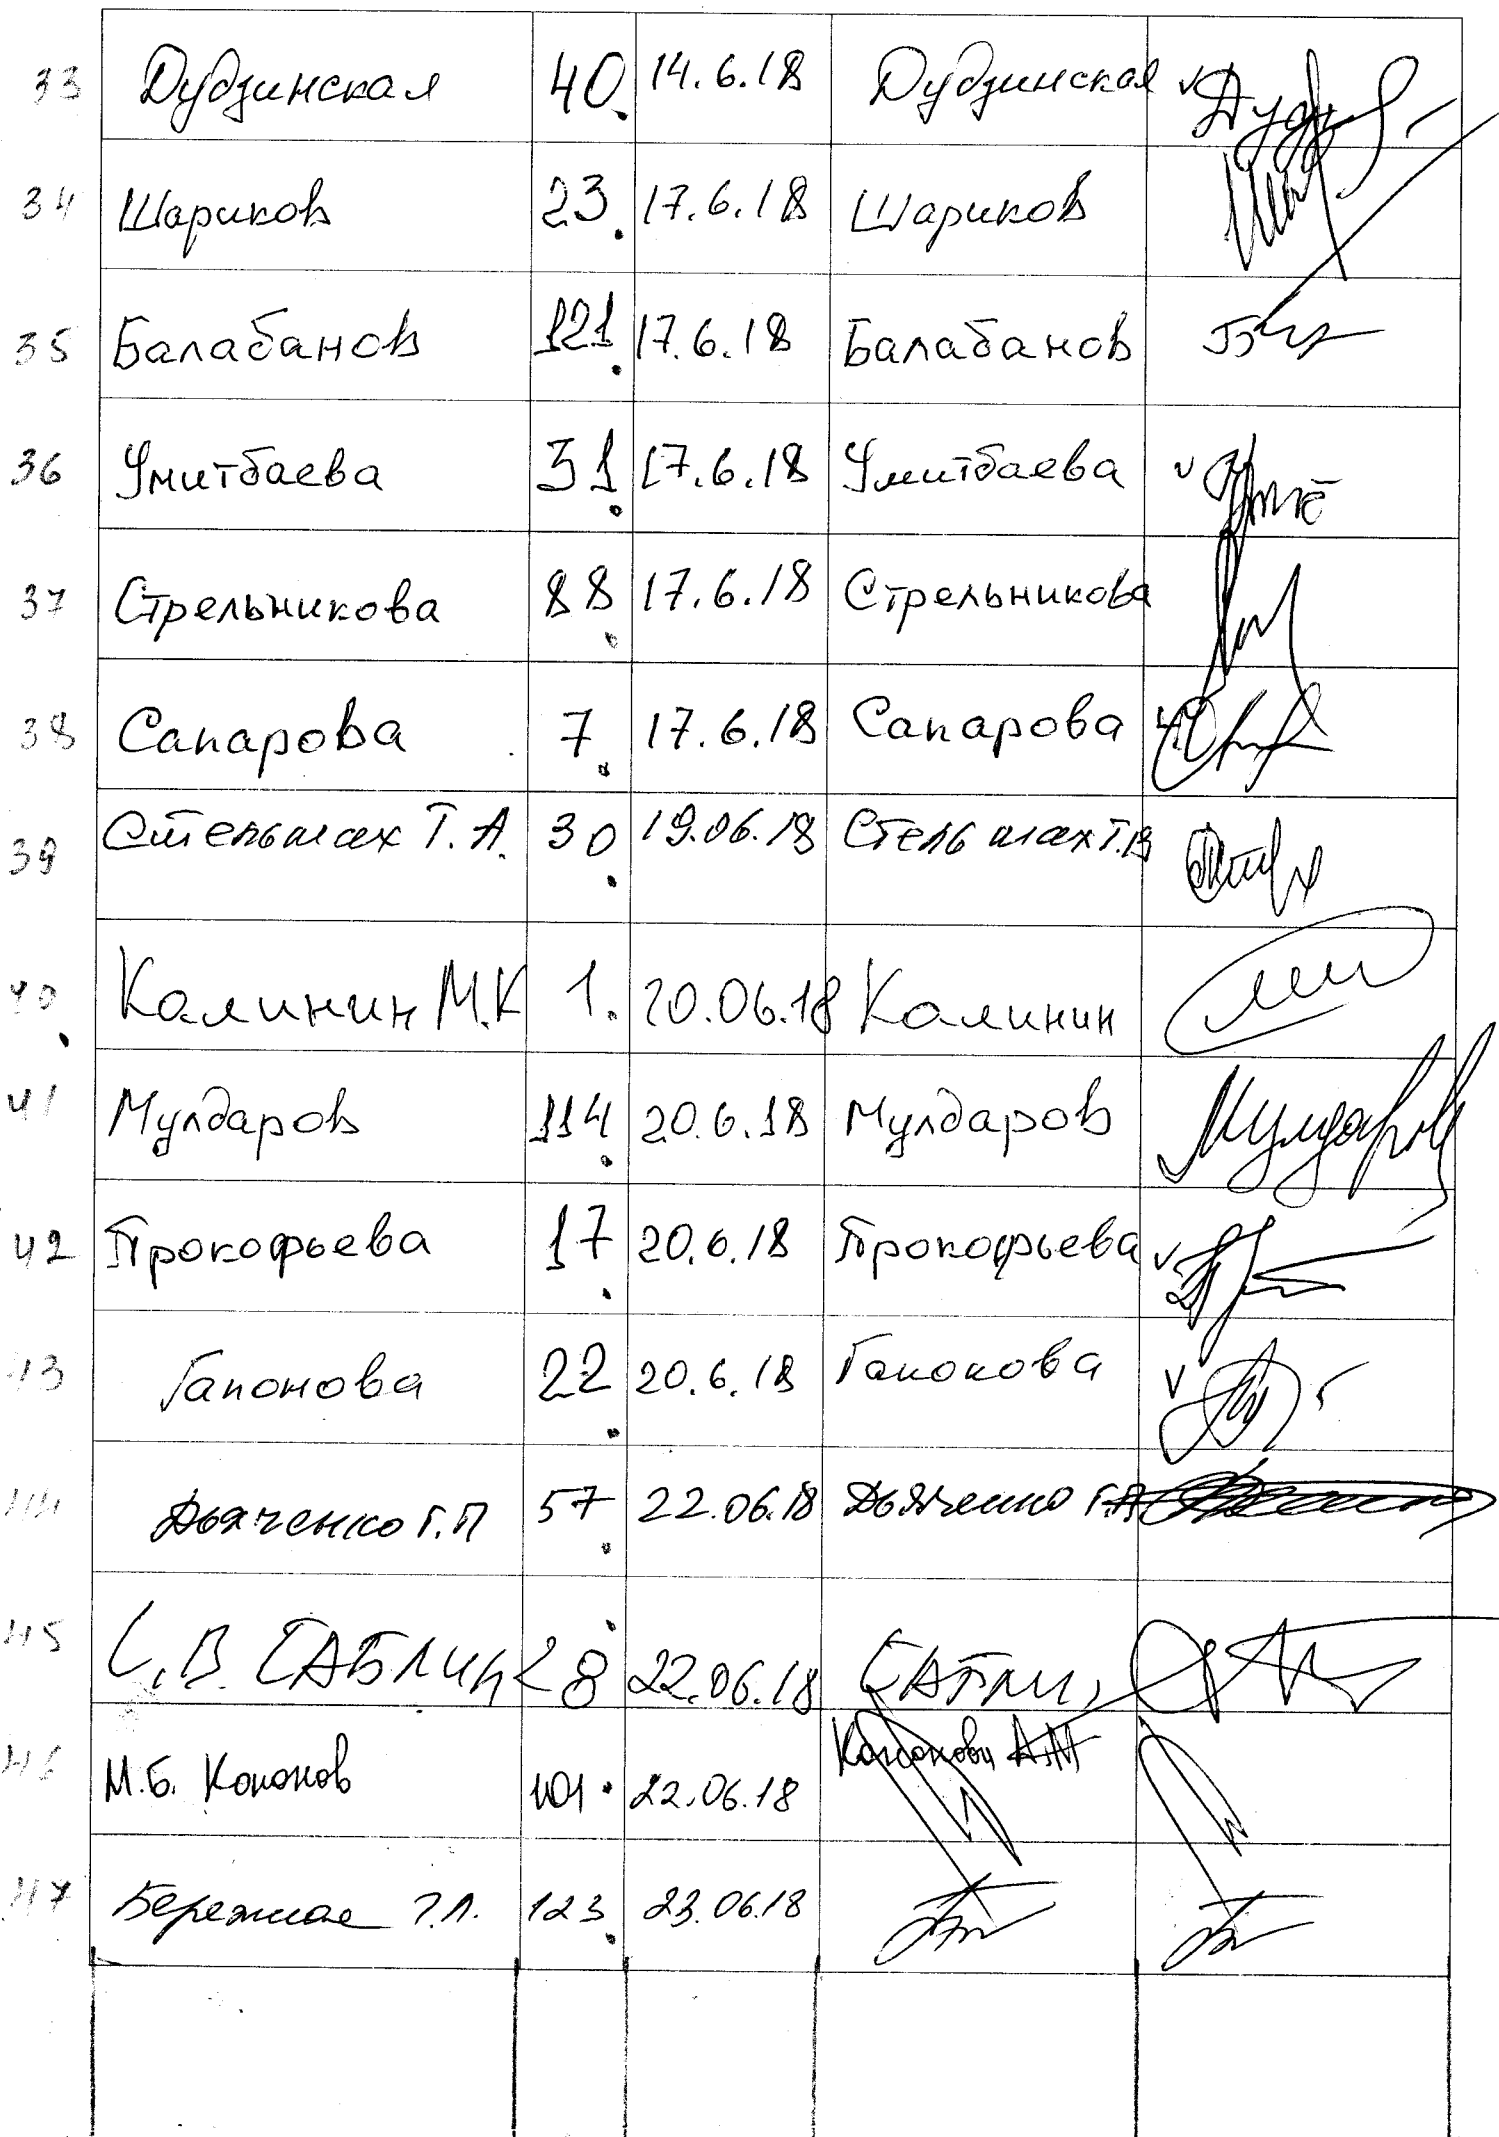 33 Дудзинская 40. 14.6.18 Дудзинская
34 Шариков 23. 17.6.18 Шариков
35 Балабанов 121. 17.6.18 Балабанов
36 Умитбаева 31. 17.6.18 Умитбаева
37 Стрельникова 88. 17.6.18 Стрельникова
38 Сапарова 7. 17.6.18 Сапарова
39 Стельмах Т.А. 30. 19.06.18 Стельмах Т.
40. Калинин М.К 1. 20.06.18 Калинин
41 Мулдаров 114. 20.6.18 Мулдаров Мулдаров
42 Прокофьева 17. 20.6.18 Прокофьева
43 Гапонова 22. 20.6.18 Гапонова
44 Дьяченко Г.П 57. 22.06.18 Дьяченко
45 С.В. САБЛИН 28 22.06.18
46 М.Б. Кононов 101. 22.06.18
47 Бережная 123. 23.06.18